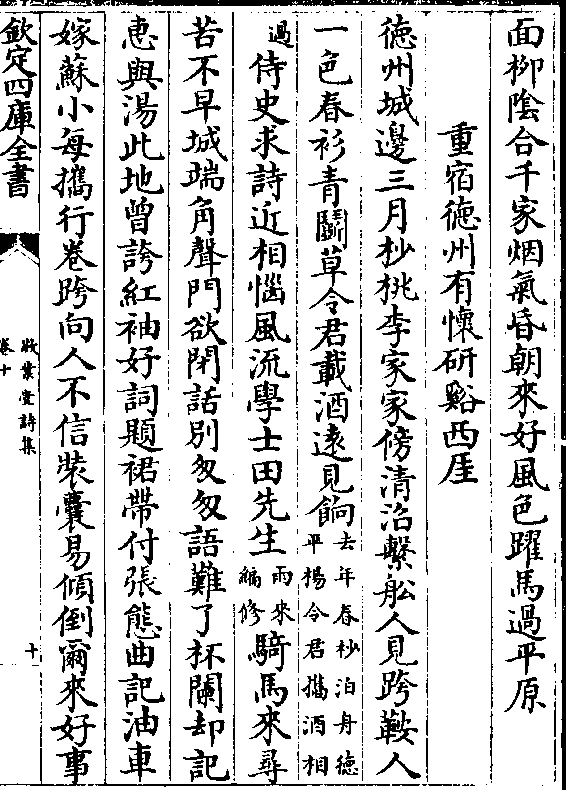 面柳陰合千家烟氣昏朝來好風色躍馬過平原
重宿徳州有懷研谿西厓
徳州城邊三月杪桃李家家傍清沼繫舩人見跨鞍人
一色春衫青鬭草令君載酒逺見餉去年春杪泊舟徳平楊令君攜酒相
過侍史求詩近相惱風流學士田先生雨來編修騎馬來尋
苦不早城端角聲門欲閉話別匆匆語難了杯闌却記
惠與湯此地曾誇紅袖好詞題裙帶付張態曲記油車
嫁蘇小每攜行卷跨向人不信裝囊易傾倒爾來好事
欽定四庫全書
敬業堂詩集
卷十
十